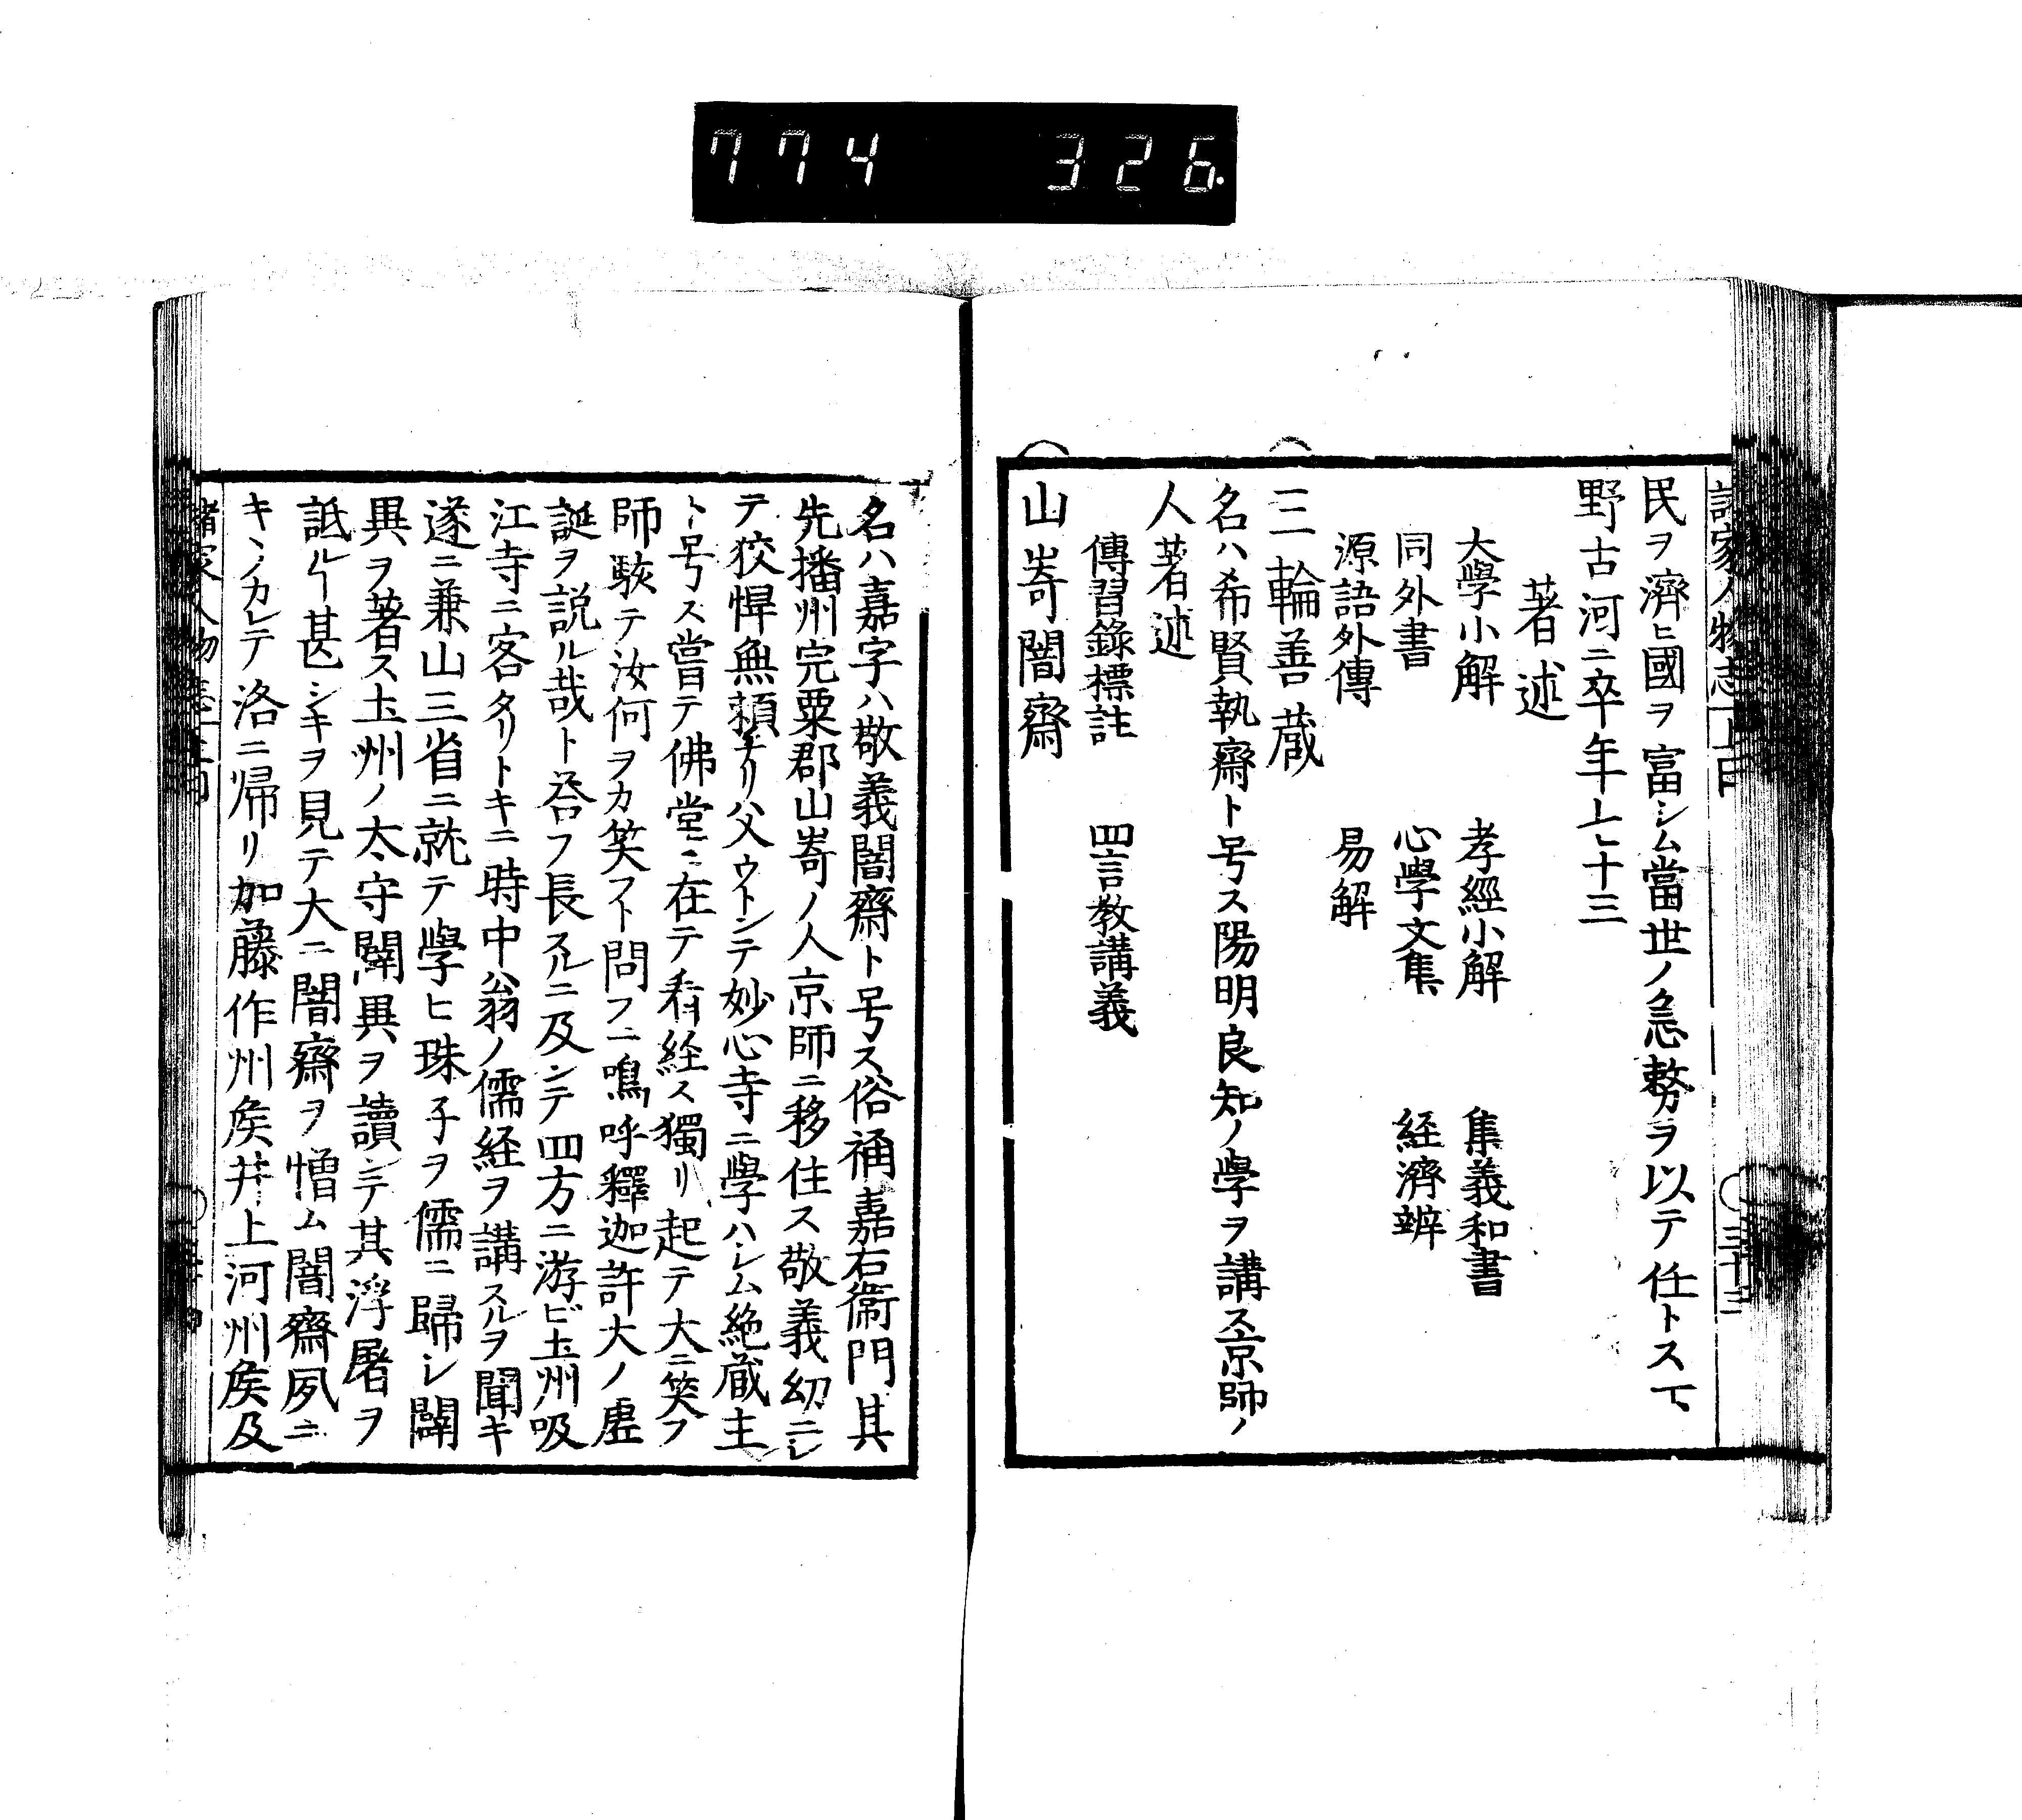 774 326.
民ヲ濟ヒ國ヲ富シム當世ノ急務ヲ以テ任トス下
野古河ニ卒年七十三
著述
大學小解 孝經小解 集義和書
同外書 心學文集 経濟辨
源語外傳 易解
三輪善蔵
名ハ希賢執齋ト号ス陽明良知ノ學ヲ講ス京師ノ
人著述
傳習錄標註 四言教講義
山嵜闇齋
名ハ嘉字ハ敬義闇齋ト号ス俗稱嘉右衞門其
先播州宍粟郡山嵜ノ人京師ニ移住ス敬義幼ニシ
テ狡悍無頼ナリ父ウトンテ妙心寺ニ學ハシム絶蔵主
ト号ス嘗テ佛堂ニ在テ看経ス獨リ起テ大ニ笑フ
師駭テ汝何ヲカ笑フト問フニ鳴呼釋迦許大ノ虚
誕ヲ説ル哉ト荅フ長スルニ及ンテ四方ニ游ビ土州吸
江寺ニ客タリトキニ時中翁ノ儒経ヲ講スルヲ聞キ
遂ニ兼山三省ニ就テ學ヒ珠子ヲ儒ニ歸シ闢
異ヲ著ス土州ノ太守闢異ヲ讀ンテ其浮屠ヲ
詆ルヿ甚シキヲ見テ大ニ闇齋ヲ憎ム闇齋夙ニ
キヽノカレテ洛ニ帰リ加藤作州矦井上河州矦及